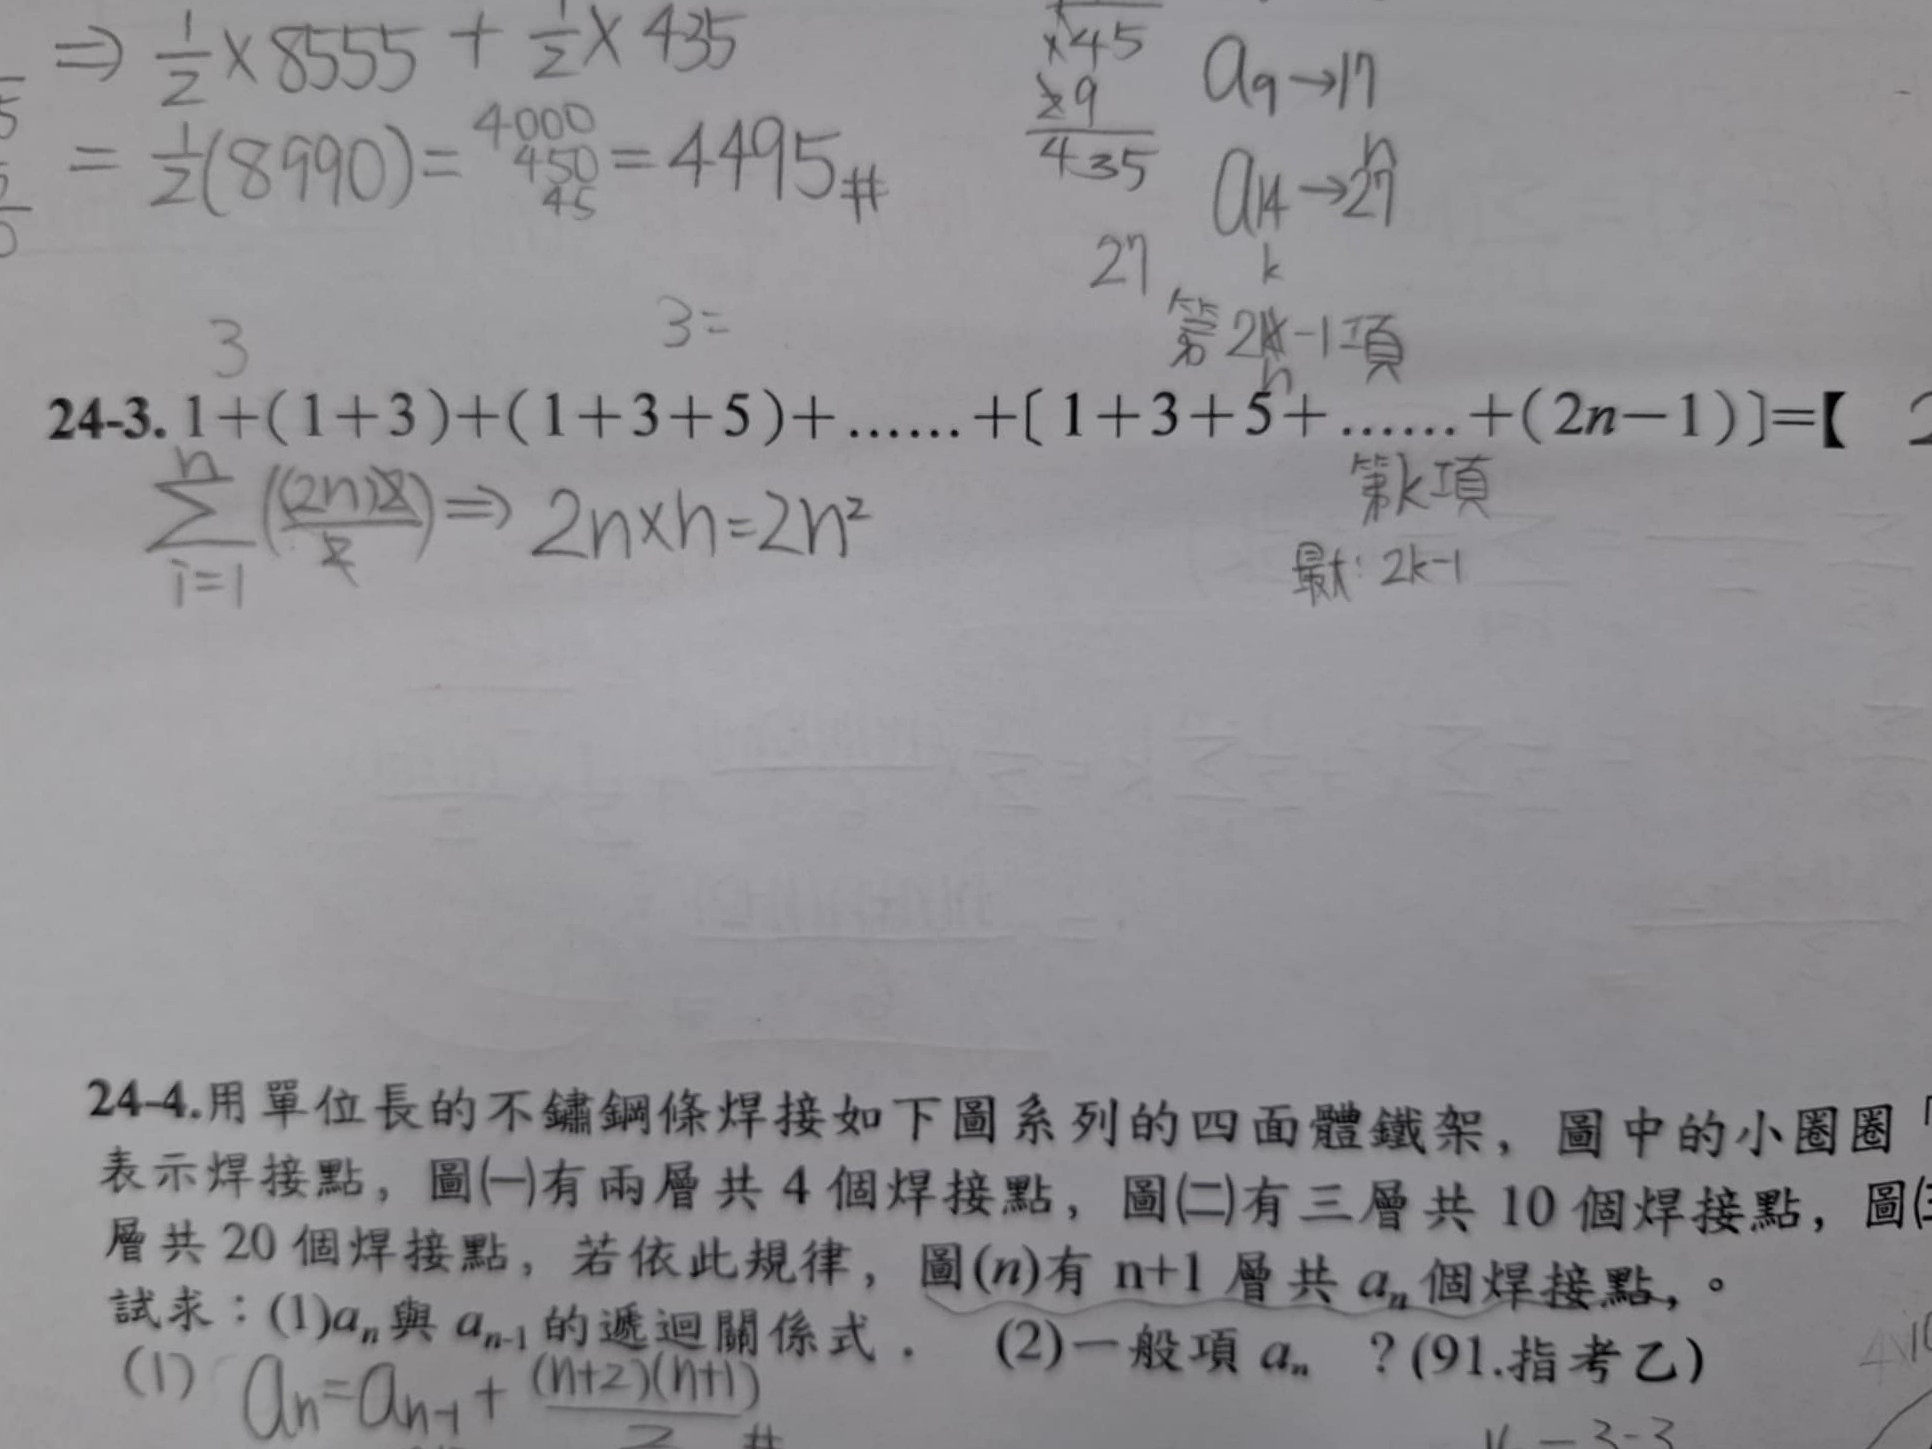 ⇒ 1/2 × 8555 + 1/2 × 435
= 1/2(8990) = 4000 450 45 = 4495#
×45
29
435
a9→17
n
a14→27
27
k
第2k-1項
n
3
3=
24-3. 1+(1+3)+(1+3+5)+……+〔1+3+5+……+(2n−1)〕=【 2
n
Σ ((2n)2/2) ⇒ 2n×n=2n²
i=1
第k項
最大: 2k-1
24-4.用單位長的不鏽鋼條焊接如下圖系列的四面體鐵架，圖中的小圈圈「
表示焊接點，圖㈠有兩層共 4 個焊接點，圖㈡有三層共 10 個焊接點，圖㈢
層共 20 個焊接點，若依此規律，圖(n)有 n+1 層共 an 個焊接點，。
試求：(1)an與 an-1 的遞迴關係式． (2)一般項 an ？(91.指考乙)
(1) an=an-1+ (n+2)(n+1)/2 #